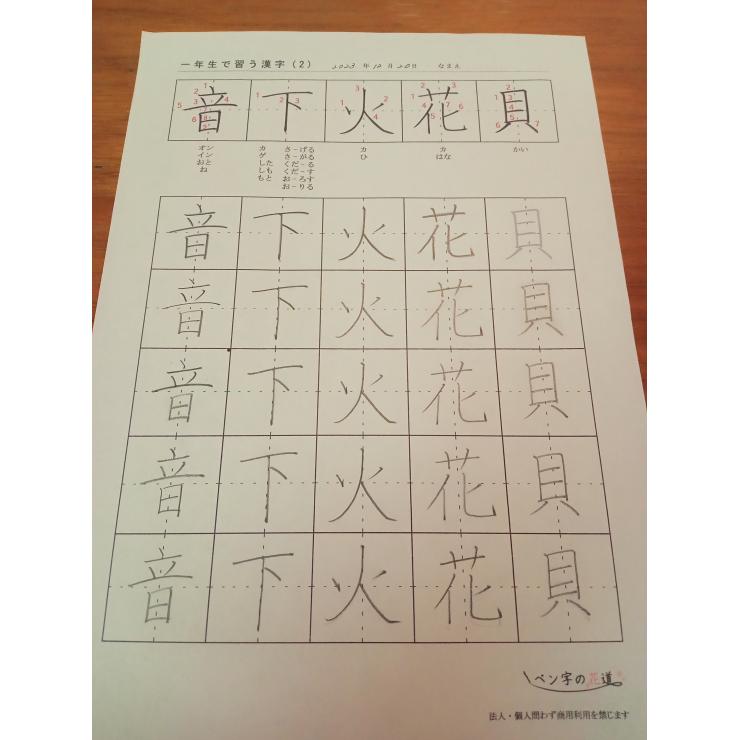 一年生で習う漢字(2) 2023年10月20日 なまえ
音 下 火 花 貝
オン
イン
おと
ね
カ
ゲ
した
しも
もと
さ-げる
さ-がる
くだ-る
くだ-す
お-ろす
お-りる
カ
ひ
カ
はな
かい
音 下 火 花 貝
音 下 火 花 貝
音 下 火 花 貝
音 下 火 花 貝
音 下 火 花 貝
ペン字の花道
法人・個人問わず商用利用を禁じます